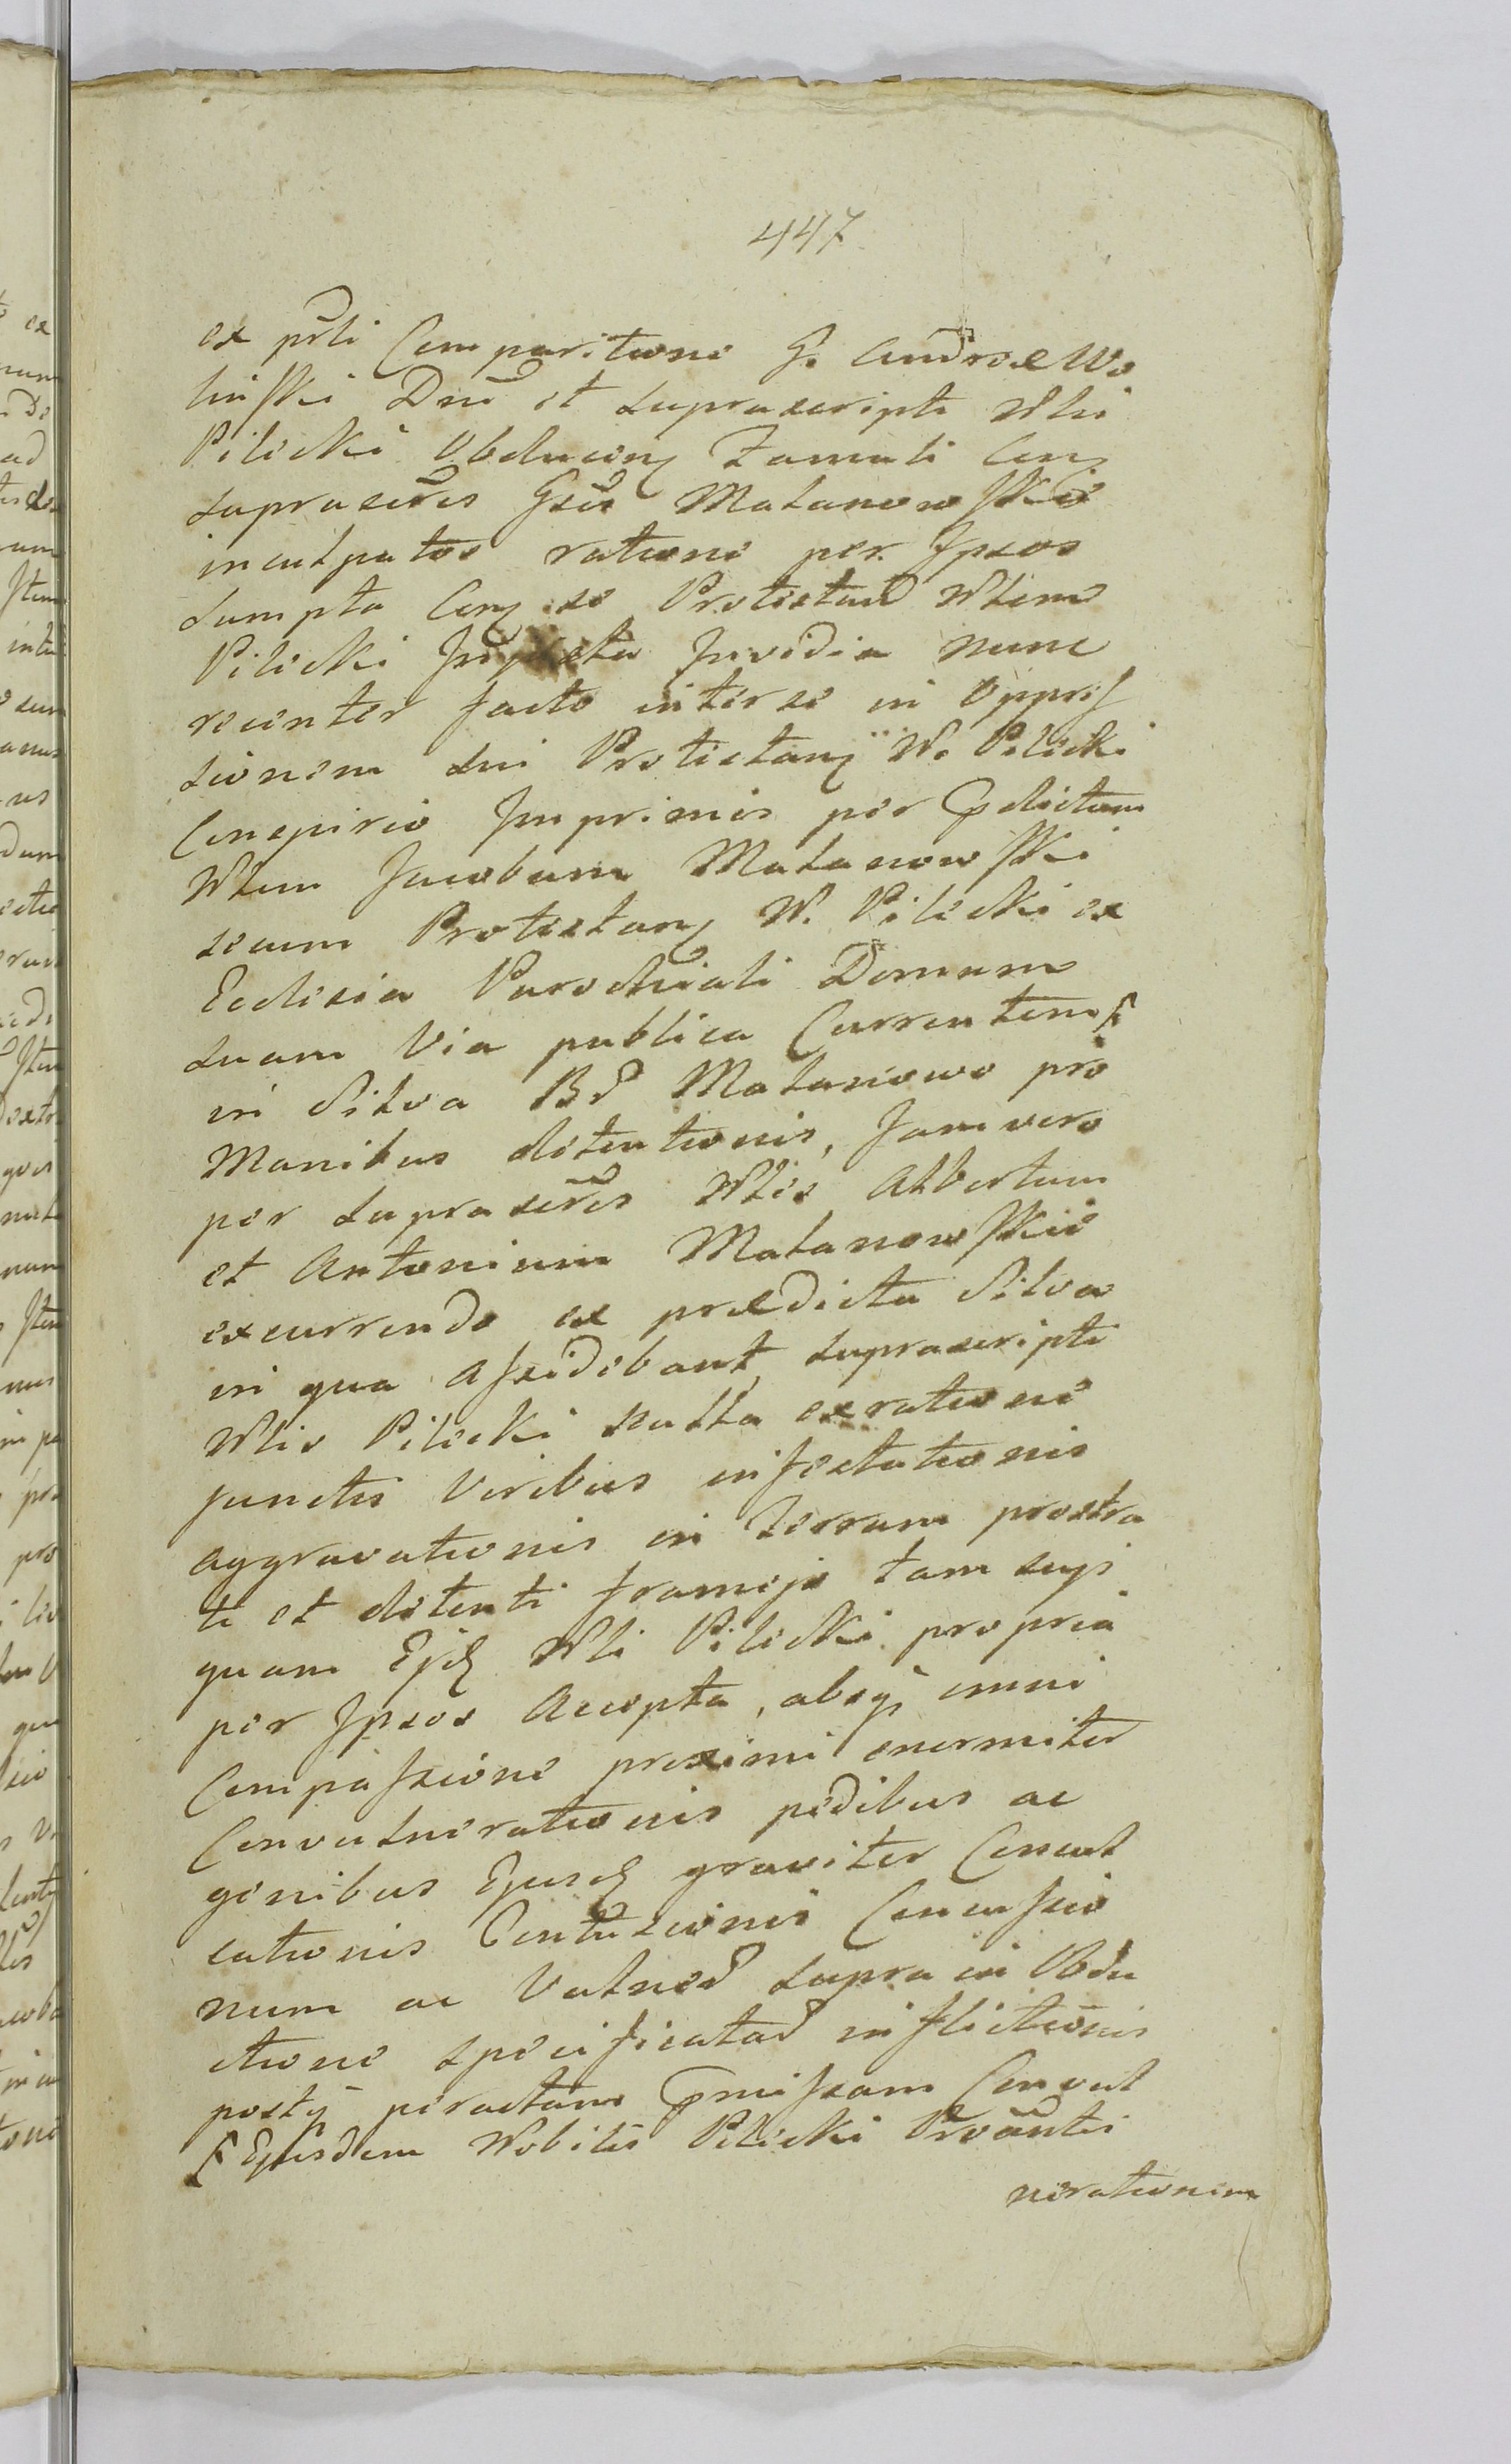 447
ex pñti Comparitione G. Andreæ Wo
linski Dnĩ et suprascripti Nblis
Pilicki Obducenȝ Famuli Conȝ
suprascr̃tis Gsũs Malanowskie
inculpatos ratione per Ipsos
sumpta Conȝ se Protestand Nblem
Pilicki Invidia nunc
recenter facto inter se in Oppres
sionem sui Protestanȝ N. Pilicki
Conspirio Imprimis per Prædictum
Nblem Jacobum Malanowski
secum Protestanȝ N. Pilicki ex
Ecclesia Parochiali Domum
suam via publica Currentem
in Silva Bd Malanowo pro
Manibus detentionis, Jam vero
per suprascr̃tis Nbles Albertum
et Antonium Malanowskie
excurrendo ex prædicta Silva
in qua assidebant, suprascripti
Nblis Pilicki nulla ex ratione
junctis Viribus infestationis
aggravationis in Terram prostra
ti et detenti frameje tam sup̃
quam Ejȝ Nbli Pilicki propria
per Ipsos Accepta, absq̃ omni
Compassione proximi enormiter
Convulnerationis pedibus ac
genibus Ejusȝ graviter Concul
cationis Contusionis Concussio
num ac Vulned supra in Obdu
ctione specificatad inflictionis
postq̃ peractam Præmissam Convul
Ejusdem Nobilis Pilicki Proãntis
nerationem